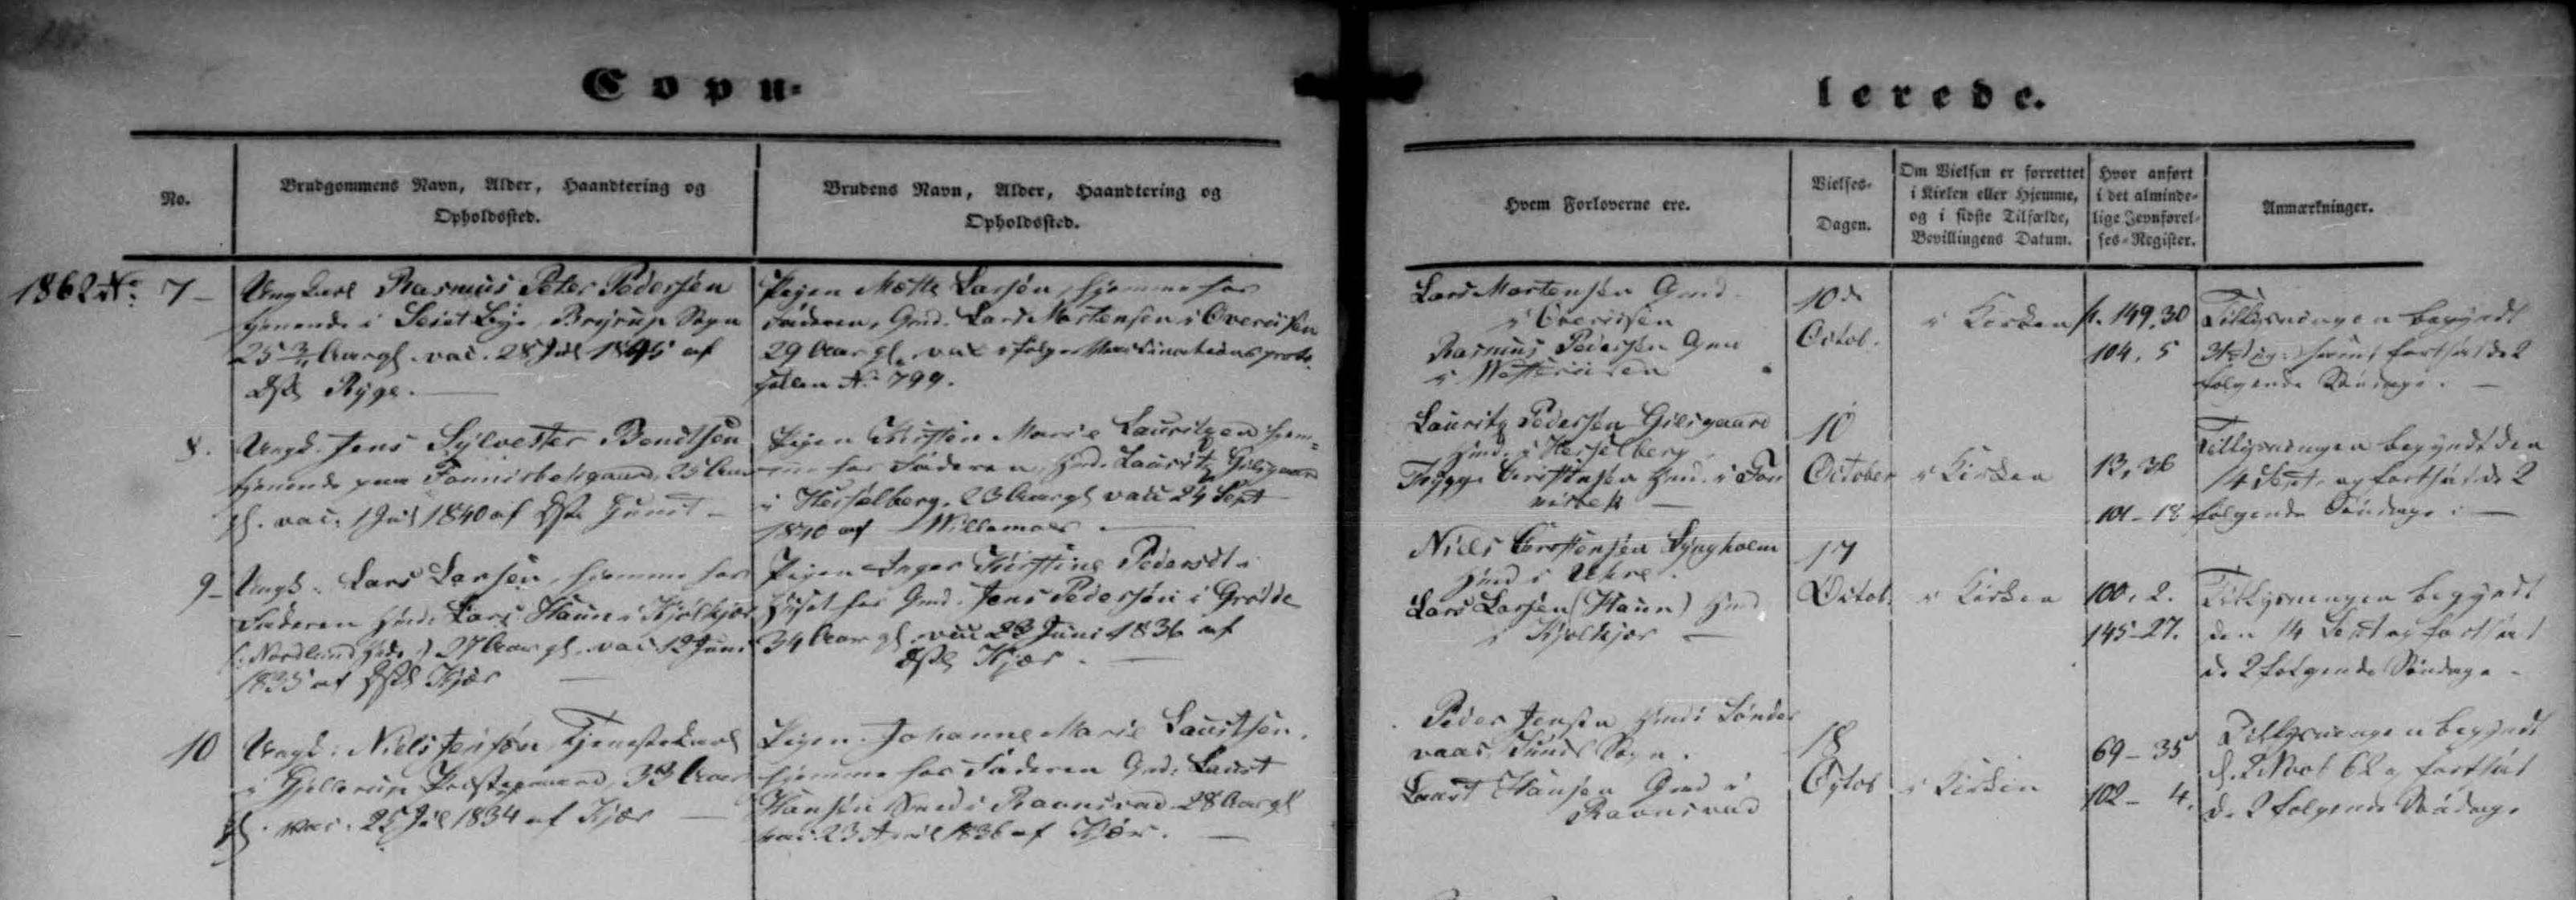 Copu-
lerede.
No.
Brudgommens Navn, Alder, Haandtering og
Opholdssted.
Brudens Navn, Alder, Haandtering og
Opholdssted.
Hvem Forloverne ere.
Vielses-
Dagen.
Om Vielsen er forrettet
i Kirken eller Hjemme,
og i sidste Tilfælde,
Bevillingens Datum.
Hvor anført
i det alminde-
lige Jevnførel-
ses-Register.
Anmærkninger.
1862 No. 7
Ungkarl Rasmus Peter Pedersen
tjenende i Seist Bye, Brejrup Sogn
25 Aar gl. vac. 28 Juli 1845 af
Ryge.
Pigen Mette Larsen, hjemme hos
Faderen, Gmd. Lars Mortensen i Overiisen
29 Aar gl. vac. ifølge Vaccinations proto-
collen No. 799.
Lars Mortensen Gmd.
i Overiisen
Rasmus Pedersen Gmd
i Westeriisen
10de
Octob.
i Kirken
p. 149, 30
104, 5
Tillysningen begyndt
fortsat de 2
følgende Søndage.
8.
Ungk. Jens Sylvester Bendtsen
tjenende paa Fonnisbekgaard, 25 Aar
gl. vac. 1 Juli 1840 af
Pigen Kirsten Marie Lauritzen hjem-
me hos Faderen, Hmd. Lauritz Gilsgaard
i Hesselberg, 23 Aar gl. vac. 24 Sept
1840 af Willemoes
Lauritz Pedersen Gilsgaard
Hmd. i Hesselberg
Trygge Christensen Hmd. i Fon-
nisbek
10
October
i Kirken
13, 36
101-18
Tillysningen begyndt den
14 Sept. og fortsat de 2
følgende Søndage
9
Ungk. Lars Larsen, hjemme hos
Faderen Hmd. Lars Haun i Kjølkjær
(: Nordlund 27 Aar gl. vac. 12 Juni
1835 af Kjær
Pigen Inger Kirstine Pedersdt.
Huset hos Gmd. Jens Pedersen i Grødde
34 Aar gl. vac. 23 Juni 1836 af
Kjær.
Niels Christensen Lyngholm
Hmd i Uhre.
Lars Larsen (Haun) Hmd
i Kjølkjær
17
Octob.
i Kirken
100, 2.
145-27.
Tillysningen begyndt
den 14 Sept og fortsat
de 2 følgende Søndage
10
Ungk. Niels Jensen, Tjenestekarl
i Gjellerup Præstegaard, 33 Aar
gl. vac. 25 Juli 1834 af Kjær
Pigen Johanne Marie Laustsen.
hjemme hos Faderen Gmd. Laust
Hansen Smed i Ravnsvad 28 Aar gl
vac. 23 April 1836 af Kjær.
Peder Jensen Hmd i Sønder
vaas, Sunds Sogn.
Laust Hansen Gmd i
Ravnsvad
18
Octob
i Kirken
69-35
102-4.
Tillysningen begyndt
fortsat
de 2 følgende Søndage